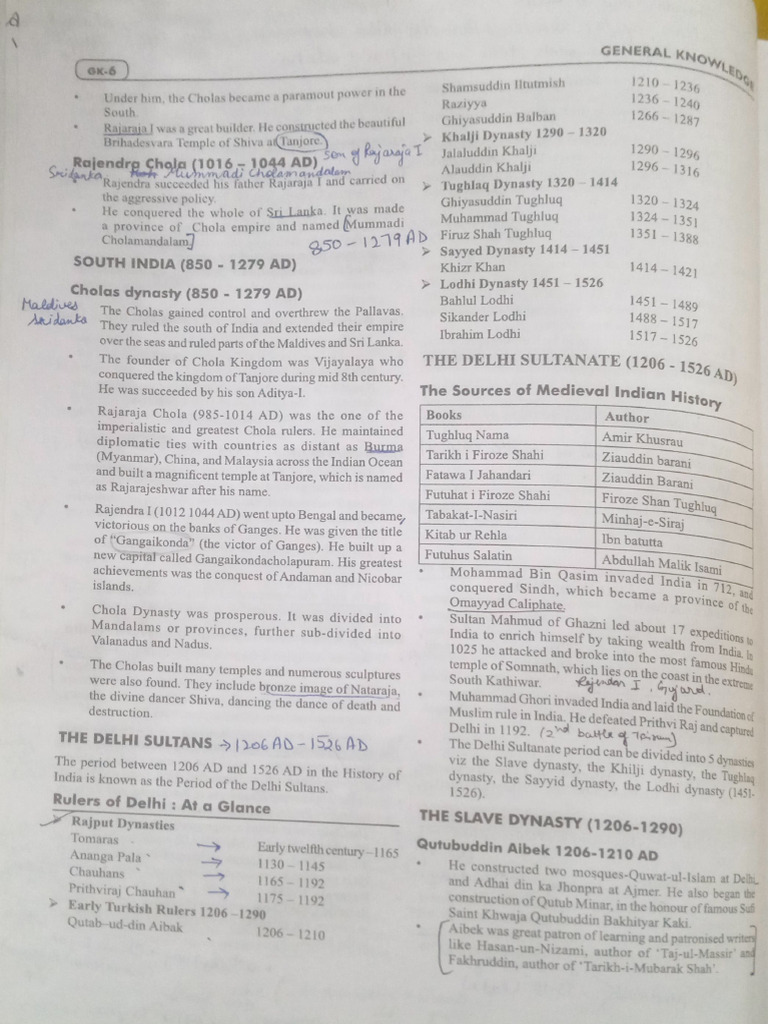 GENERAL KNOWLEDGE
GK-6
• Under him, the Cholas became a paramount power in the
South.
• Rajaraja I was a great builder. He constructed the beautiful
Brihadesvara Temple of Shiva at Tanjore.
Rajendra Chola (1016 – 1044 AD) son of Rajaraja I
Srilanka Mummadi Cholamandalam
Rajendra succeeded his father Rajaraja I and carried on
the aggressive policy.
• He conquered the whole of Sri Lanka. It was made
a province of Chola empire and named [Mummadi
Cholamandalam] 850 – 1279 AD
SOUTH INDIA (850 - 1279 AD)
Cholas dynasty (850 - 1279 AD)
Maldives
Srilanka
The Cholas gained control and overthrew the Pallavas.
They ruled the south of India and extended their empire
over the seas and ruled parts of the Maldives and Sri Lanka.
• The founder of Chola Kingdom was Vijayalaya who
conquered the kingdom of Tanjore during mid 8th century.
He was succeeded by his son Aditya-I.
• Rajaraja Chola (985-1014 AD) was the one of the
imperialistic and greatest Chola rulers. He maintained
diplomatic ties with countries as distant as Burma
(Myanmar), China, and Malaysia across the Indian Ocean
and built a magnificent temple at Tanjore, which is named
as Rajarajeshwar after his name.
• Rajendra I (1012 1044 AD) went upto Bengal and became
victorious on the banks of Ganges. He was given the title
of "Gangaikonda" (the victor of Ganges). He built up a
new capital called Gangaikondacholapuram. His greatest
achievements was the conquest of Andaman and Nicobar
islands.
• Chola Dynasty was prosperous. It was divided into
Mandalams or provinces, further sub-divided into
Valanadus and Nadus.
• The Cholas built many temples and numerous sculptures
were also found. They include bronze image of Nataraja,
the divine dancer Shiva, dancing the dance of death and
destruction.
THE DELHI SULTANS → 1206 AD – 1526 AD
The period between 1206 AD and 1526 AD in the History of
India is known as the Period of the Delhi Sultans.
Rulers of Delhi : At a Glance
➢ Rajput Dynasties
Tomaras → Early twelfth century –1165
Ananga Pala → 1130 – 1145
Chauhans → 1165 – 1192
Prithviraj Chauhan → 1175 – 1192
➢ Early Turkish Rulers 1206 –1290
Qutab–ud-din Aibak 1206 – 1210
Shamsuddin Iltutmish 1210 – 1236
Raziyya 1236 – 1240
Ghiyasuddin Balban 1266 – 1287
➢ Khalji Dynasty 1290 – 1320
Jalaluddin Khalji 1290 – 1296
Alauddin Khalji 1296 – 1316
➢ Tughlaq Dynasty 1320 – 1414
Ghiyasuddin Tughluq 1320 – 1324
Muhammad Tughluq 1324 – 1351
Firuz Shah Tughluq 1351 – 1388
➢ Sayyed Dynasty 1414 – 1451
Khizr Khan 1414 – 1421
➢ Lodhi Dynasty 1451 – 1526
Bahlul Lodhi 1451 – 1489
Sikander Lodhi 1488 – 1517
Ibrahim Lodhi 1517 – 1526
THE DELHI SULTANATE (1206 - 1526 AD)
The Sources of Medieval Indian History
Books Author
Tughluq Nama Amir Khusrau
Tarikh i Firoze Shahi Ziauddin barani
Fatawa I Jahandari Ziauddin Barani
Futuhat i Firoze Shahi Firoze Shan Tughluq
Tabakat-I-Nasiri Minhaj-e-Siraj
Kitab ur Rehla Ibn batutta
Futuhus Salatin Abdullah Malik Isami
• Mohammad Bin Qasim invaded India in 712, and
conquered Sindh, which became a province of the
Omayyad Caliphate.
• Sultan Mahmud of Ghazni led about 17 expeditions to
India to enrich himself by taking wealth from India. In
1025 he attacked and broke into the most famous Hindu
temple of Somnath, which lies on the coast in the extreme
South Kathiwar.
• Muhammad Ghori invaded India and laid the Foundation of
Muslim rule in India. He defeated Prithvi Raj and captured
Delhi in 1192. (2nd battle of Tarain)
• The Delhi Sultanate period can be divided into 5 dynasties
viz the Slave dynasty, the Khilji dynasty, the Tughlaq
dynasty, the Sayyid dynasty, the Lodhi dynasty (1451-
1526).
THE SLAVE DYNASTY (1206-1290)
Qutubuddin Aibek 1206-1210 AD
• He constructed two mosques-Quwat-ul-Islam at Delhi,
and Adhai din ka Jhonpra at Ajmer. He also began the
construction of Qutub Minar, in the honour of famous Sufi
Saint Khwaja Qutubuddin Bakhityar Kaki.
• Aibek was great patron of learning and patronised writers
like Hasan-un-Nizami, author of 'Taj-ul-Massir' and
Fakhruddin, author of 'Tarikh-i-Mubarak Shah'.